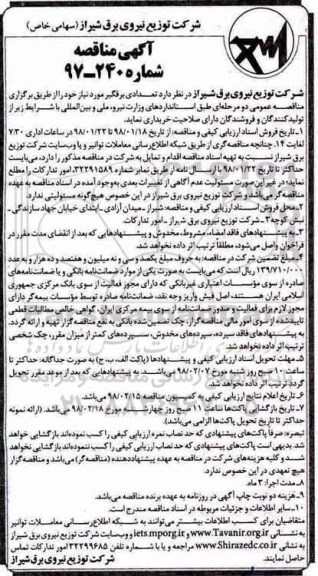 شرکت توزیع نیروی برق شیراز (سهامی خاص)
آگهی مناقصه
شماره ۲۴۰-۹۷
شرکت توزیع نیروی برق شیراز در نظر دارد تعدادی برقگیر مورد نیاز خود را از طریق برگزاری
مناقصه عمومی دو مرحله‌ای طبق استانداردهای وزارت نیرو، ملی و بین‌المللی با شرایط زیر از
تولیدکنندگان و فروشندگان دارای صلاحیت خریداری نماید.
۱ـ تاریخ فروش اسناد ارزیابی کیفی و مناقصه: از تاریخ ۹۸/۰۱/۱۸ تا ۹۸/۰۱/۲۲ در ساعات اداری ۷/۳۰
لغایت ۱۴. چنانچه مناقصه‌گری از طریق شبکه اطلاع‌رسانی معاملات توانیر و یا وب‌سایت شرکت توزیع
برق شیراز نسبت به تهیه اسناد مناقصه اقدام و تمایل به شرکت در مناقصه مذکور را دارد، می‌بایست
حداکثر تا تاریخ ۹۸/۰۱/۲۲ با ارسال نامه از طریق نمابر شماره ۳۲۲۹۱۵۸۹ امور تدارکات را مطلع
نماید؛ در غیر این صورت مسئولیت عدم آگاهی از تغییرات بعدی به‌وجود آمده در اسناد مناقصه به عهده
مناقصه‌گر می‌باشد و شرکت توزیع نیروی برق شیراز در این خصوص هیچگونه مسئولیتی ندارد.
۲ـ محل فروش اسناد ارزیابی کیفی و مناقصه: شیراز ـ میدان آزادی ـ ابتدای خیابان جهاد سازندگی ـ
نبش کوچه ۳ ـ شرکت توزیع نیروی برق شیراز ـ امور تدارکات
۳ـ به پیشنهادهای فاقد امضاء، مشروط، مخدوش و پیشنهادهایی که بعد از انقضای مدت مقرر در
فراخوان واصل می‌شود، مطلقاً ترتیب اثر داده نخواهد شد.
۴ـ مبلغ تضمین شرکت در مناقصه: به حروف مبلغ یکصد و سی و نه میلیون و هفتصد و ده هزار و به عدد
۱۳۹/۷۱۰/۰۰۰ ریال است که می‌بایست به صورت یکی از موارد ضمانت‌نامه بانکی و یا ضمانت‌نامه‌های
صادره از سوی مؤسسات اعتباری غیربانکی که دارای مجوز فعالیت از سوی بانک مرکزی جمهوری
اسلامی ایران هستند، اصل فیش واریز وجه نقد، ضمانت‌نامه صادره توسط مؤسسات بیمه‌گر دارای
مجوز لازم برای فعالیت و صدور ضمانت‌نامه از سوی بیمه مرکزی ایران، گواهی خالص مطالبات قطعی
تاییدشده از سوی امور مالی مناقصه‌گزار، چک تضمین‌شده بانکی به نفع مناقصه‌گزار تهیه و ارائه گردد.
به پیشنهادهای فاقد سپرده، سپرده‌های مخدوش، سپرده‌های کمتر از میزان مقرر، چک شخصی
ترتیب اثر داده نخواهد شد.
۵ـ مهلت تحویل اسناد ارزیابی کیفی و پیشنهادها (پاکت الف، ب، ج) به صورت جداگانه: حداکثر تا
ساعت ۱۰ صبح روز شنبه مورخ ۹۸/۰۲/۰۷ می‌باشد. به پیشنهادهایی که بعد از موعد مقرر تحویل
گردد ترتیب اثر داده نخواهد شد.
۶ـ تاریخ اعلام نتایج ارزیابی کیفی به کمیسیون مناقصه: ۹۸/۰۲/۱۵ می‌باشد.
۷ـ تاریخ بازگشایی پاکت‌ها ساعت ۱۱ صبح روز چهارشنبه مورخ ۹۸/۰۲/۱۸ می‌باشد. (ارائه نمونه
حداکثر تا تاریخ تحویل پاکت‌ها الزامی می‌باشد).
تبصره: صرفاً پاکت‌های پیشنهادی که حد نصاب نمره ارزیابی کیفی را کسب نموده‌اند بازگشایی خواهد
شد. بدیهی است پاکت‌های پیشنهادی که حد نصاب ارزیابی کیفی را کسب ننموده‌اند بازگشایی نخواهد
شد و کلیه هزینه‌های شرکت در مناقصه به عهده پیشنهاددهنده (مناقصه‌گر) می‌باشد و مناقصه‌گزار
هیچ تعهدی در این خصوص ندارد.
۸ـ مدت اجرا: ۳ ماه.
۹ـ هزینه دو نوبت چاپ آگهی در روزنامه به عهده برنده مناقصه می‌باشد.
۱۰ـ سایر اطلاعات و جزئیات مربوطه در اسناد مناقصه مندرج است.
متقاضیان برای کسب اطلاعات بیشتر می‌توانند به شبکه اطلاع‌رسانی معاملات توانیر
به نشانی www.Tavanir.org.ir و iets.mporg.ir و وب‌سایت شرکت توزیع نیروی برق شیراز
به نشانی www.Shirazedc.co.ir مراجعه و یا با شماره تلفن ۳۲۲۹۹۶۸۵ امور تدارکات تماس
حاصل نمایند.
شرکت توزیع نیروی برق شیراز